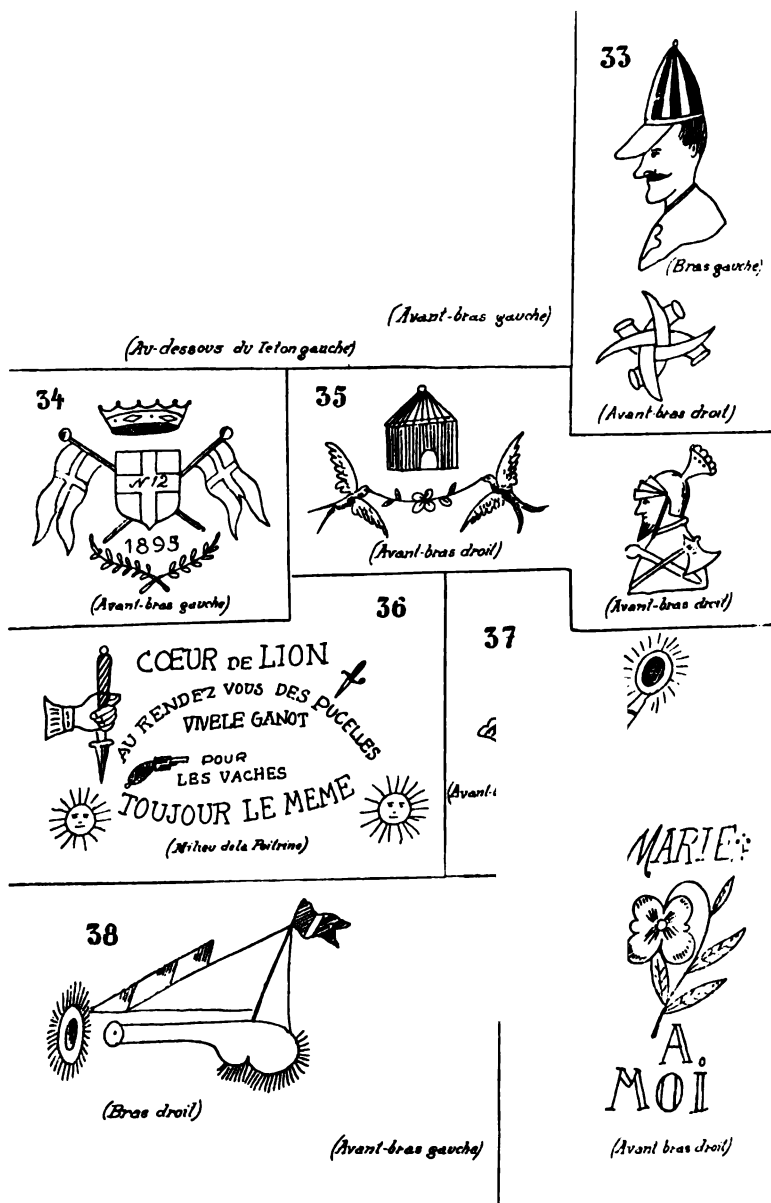 33
(Bras gauche)
(Avant-bras gauche)
(Au-dessous du Teton gauche)
(Avant-bras droit)
34
N 12
1895
(Avant-bras gauche)
35
(Avant-bras droit)
(Avant-bras droit)
36
CŒUR DE LION
AU RENDEZ VOUS DES PUCELLES
VIVE LE GANOT
POUR
LES VACHES
TOUJOUR LE MEME
(Milieu de la Poitrine)
37
(Avant-
MARIE
A.
MOI
(Avant bras droit)
38
(Bras droit)
(Avant-bras gauche)